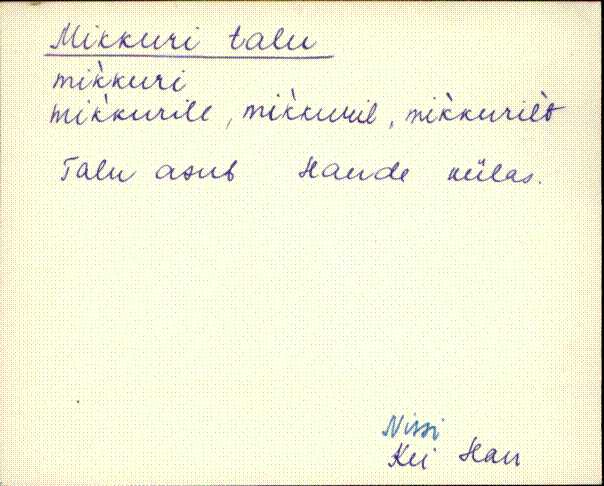 Mikkuri talu
mi`kkuri
mi`kkurile, mi`kkuril, mi`kkurilt
Talu asub Haude külas.
Nissi
Kei Hau